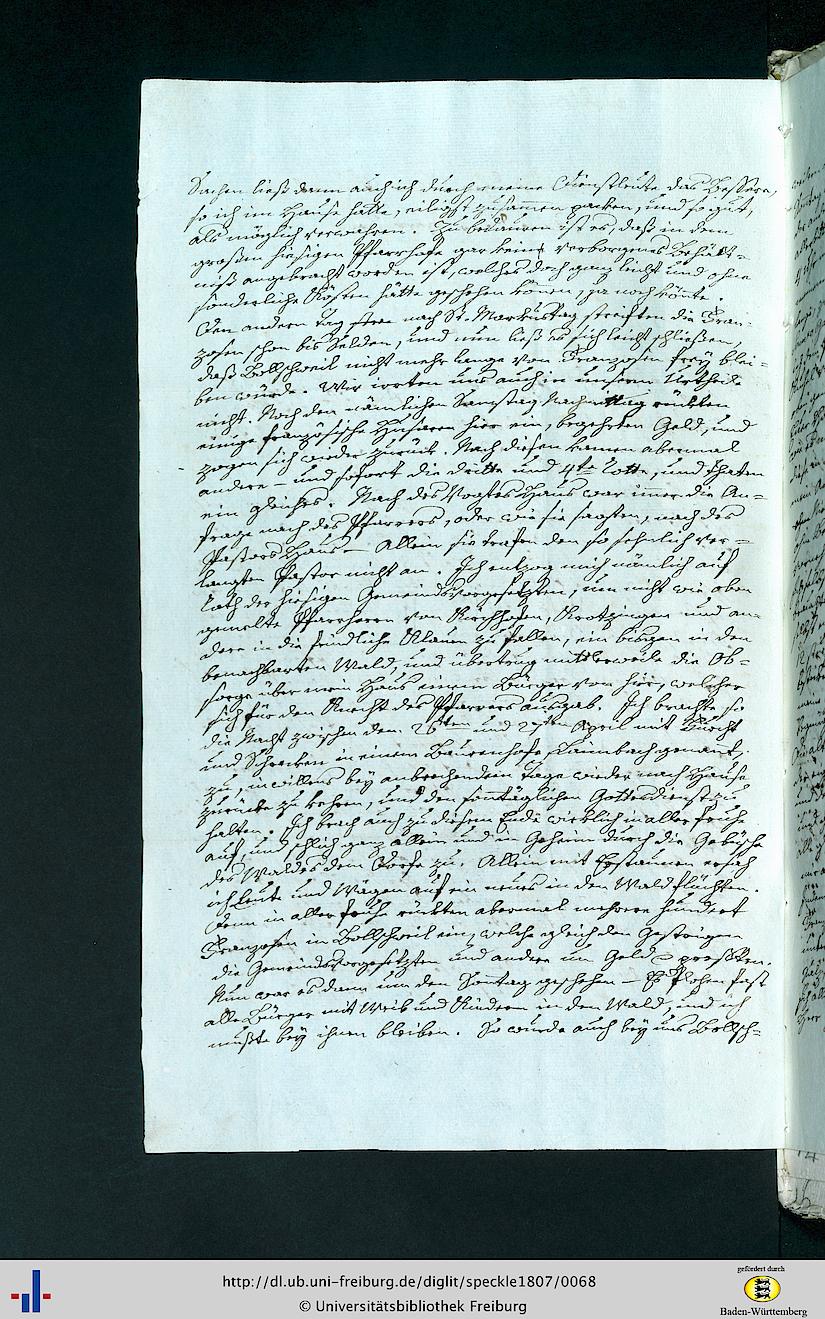 Sachen ließ dann auch ich durch meine Dienstleute das Bessere,
so ich im Hause hatte, eiligst zusammen packen, und so gut,
als möglich verwahren. Zu bedauren ist es, daß in dem
großen hiesigen Pfarrhofe gar keine verborgenes Behält-
niß angebracht worden ist, welches doch ganz leicht und ohne
sonderliche Kösten hätte geschehen können, ja noch könnte.
Den andern Tag nach St. Markustag streiften die Fran-
zosen schon bis Selden, und nun ließ es sich leicht schließen,
daß Bollschweil nicht mehr lange von Franzosen frey blei-
ben würde. Wir irrten uns auch in unserm Urtheile
nicht. Noch den nämlichen Samstag Nachmittag rückten
einige französische Husaren hier ein, begehrten Geld, und
zogen sich wieder zurück. Nach diesen kamen abermal
andere – und sofort die dritte und 4te Rotte, und thaten
ein gleiches. Nach des Vogtes Haus war imer die An-
frage nach des Pfarrers, oder wie sie sagten, nach des
Pastors Haus – Allein sie trafen den so sehnlich ver-
langten Pastor nicht an. Ich entzog mich nämlich auf
Rath der hiesigen Gemeindsvorgesetzten, um nicht wie oben
gemelte Pfarrherrn von Kirchhofen, Krotzingen und an-
dere in die feindliche Klauen zu fallen, ein bisgen in den
benachbarten Wald, und übertrug mittlerweile die Ob-
sorge über mein Haus einem Bürger von hier, welcher
sich für den Knecht des Pfarrers ausgab. Ich brachte so
die Nacht zwischen dem 26ten und 27ten April mit Furcht
und Schrecken in einem Baurenhofe Leimbach genannt,
zu, in willens bey anbrechendem Tage wieder nach Hause
zurücke zu kehren, und den sontäglichen Gottesdienst zu
halten. Ich brach auch zu diesem Ende wirklich in aller Frühe
auf, und schlich ganz allein und in Geheim durch die Gebüsche
des Waldes dem Dorfe zu. Allein mit Erstaunen ersah
ich Leute und Wägen auf ein neues in den Wald flüchten.
Denn in aller Frühe rückten abermal mehrere hundert
Franzosen in Bollschweil ein, welche gleich den Gestrigen
die Gemeindsvorgesetzten und andere um Geld preßten.
Nun war es dann um den Sontag geschehen – Es flohen fast
alle Bürger mit Weib und Kindern in den Wald, und ich
mußte bey ihnen bleiben. So wurde auch bey uns Bollsch-
http://dl.ub.uni-freiburg.de/diglit/speckle1807/0068
© Universitätsbibliothek Freiburg
gefördert durch
Baden-Württemberg